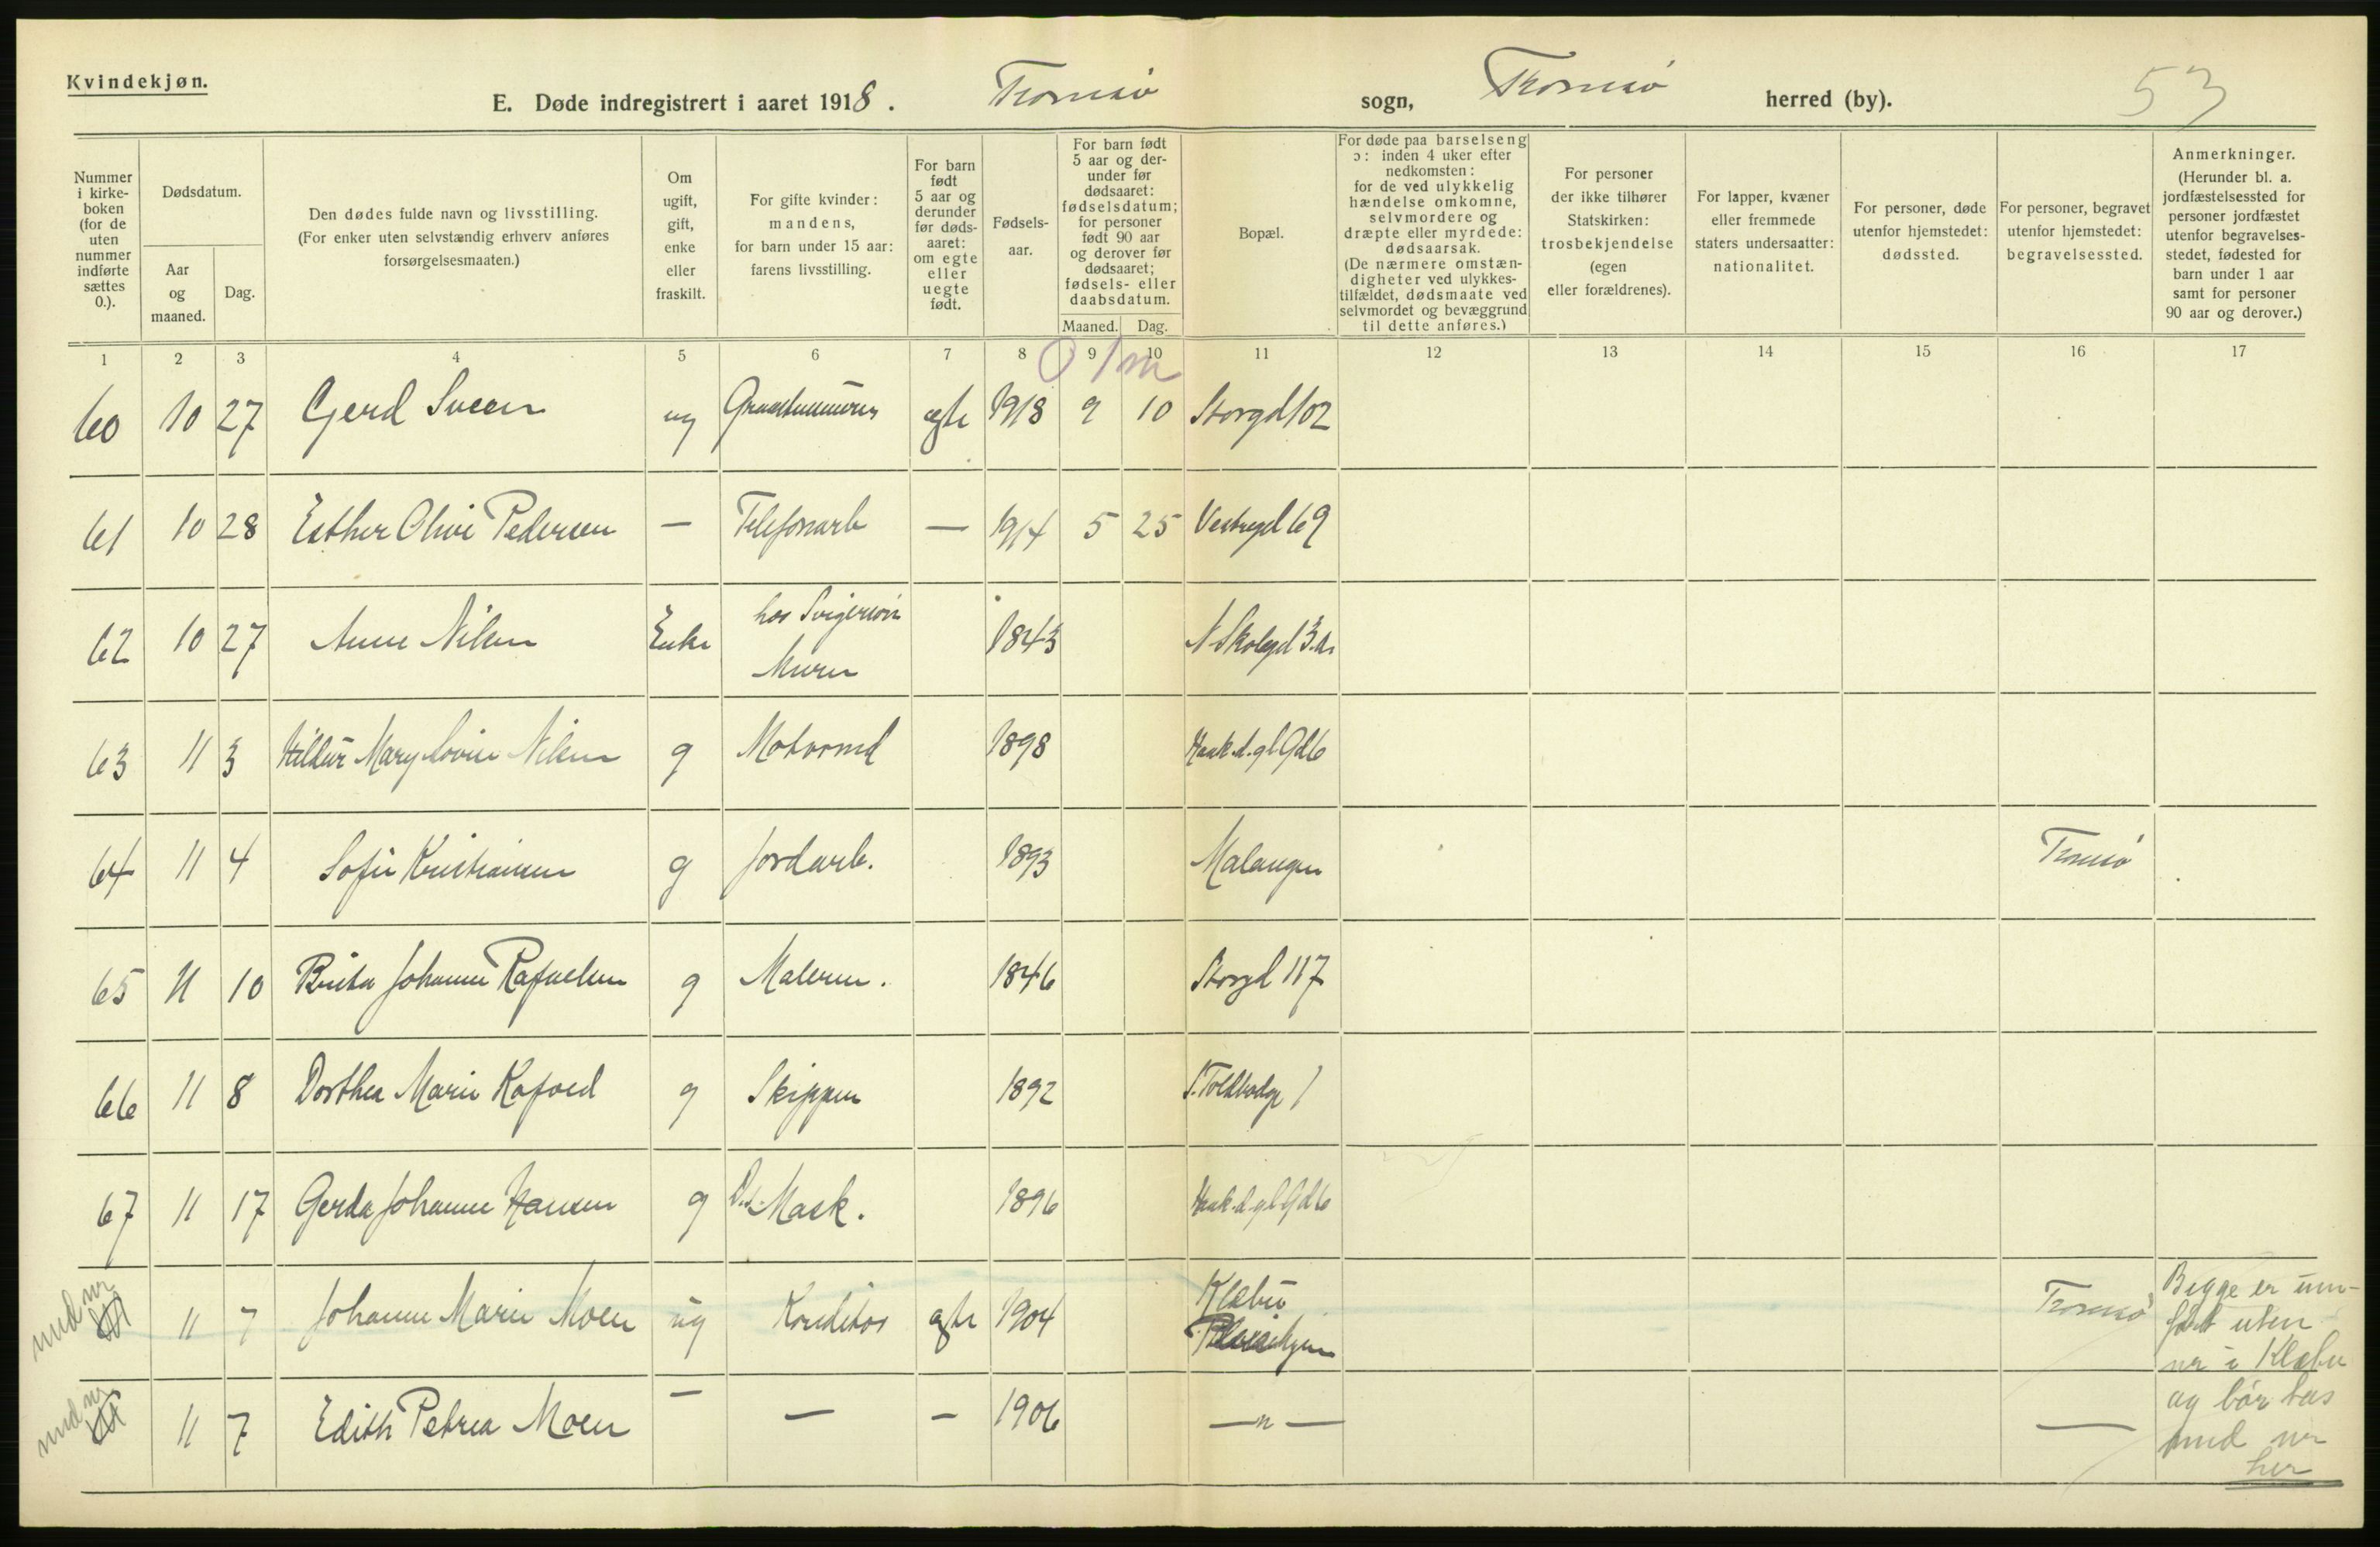 Kvindekjøn.
E. Døde indregistrert i aaret 1918. Tromsø sogn, Tromsø herred (by). 53
Nummer i kirke- boken (for de uten nummer indførte sættes 0.).
Dødsdatum.
Aar og maaned.
Dag.
Den dødes fulde navn og livsstilling.
(For enker uten selvstændig erhverv anføres
forsørgelsesmaaten.)
Om ugift, gift, enke eller fraskilt.
For gifte kvinder:
mandens,
for barn under 15 aar:
farens livsstilling.
For barn født 5 aar og derunder før døds- aaret: om egte eller uegte født.
Fødsels- aar.
For barn født 5 aar og der- under før dødsaaret: fødselsdatum; for personer født 90 aar og derover før dødsaaret; fødsels- eller daabsdatum.
Maaned. Dag.
Bopæl.
For døde paa barselseng
ɔ: inden 4 uker efter
nedkomsten:
for de ved ulykkelig
hændelse omkomne,
selvmordere og
dræpte eller myrdede:
dødsaarsak.
(De nærmere omstæn-
digheter ved ulykkes-
tilfældet, dødsmaate ved
selvmordet og bevæggrund
til dette anføres.)
For personer
der ikke tilhører
Statskirken:
trosbekjendelse
(egen
eller forældrenes).
For lapper, kvæner
eller fremmede
staters undersaatter:
nationalitet.
For personer, døde
utenfor hjemstedet:
dødssted.
For personer, begravet
utenfor hjemstedet:
begravelsessted.
Anmerkninger.
(Herunder bl. a.
jordfæstelsessted for
personer jordfæstet
utenfor begravelses-
stedet, fødested for
barn under 1 aar
samt for personer
90 aar og derover.)
1 2 3 4 5 6 7 8 9 10 11 12 13 14 15 16 17
0 1 m
60 10 27 Gerd Sveen ug egte 1918 9 10 Storgd 102
61 10 28 Esther Olive Pedersen — Telefonarb — 1914 5 25 Vestregd 69
62 10 27 Anne Nilsen Enke hos Svigersøn Murer 1843 N Skolegd 3a
63 11 3 Hildur Mary Lovise Nilsen g Motormd 1898 Haak.d.gl Gd 6
64 11 4 Sofie Kristiansen g Jordarb. 1893 Malangen Tromsø
65 11 10 Berita Johanne Rafaelsen g Malerm. 1846 Storgd 117
66 11 8 Dorthea Marie Kofoed g Skipper 1892 S. Toldbodg 1
67 11 17 Gerda Johanne Hansen g Mask. 1896 Haak.d.gl Gd 6
med nr 11 7 Johanne Marie Moen ug Konditor egte 1904 Klæbu Tromsø
med nr 11 7 Edith Petrea Moen — — — 1906 — n — —
Begge er inn-
ført uten
nr i Klæbu
og bør tas
med nr
her